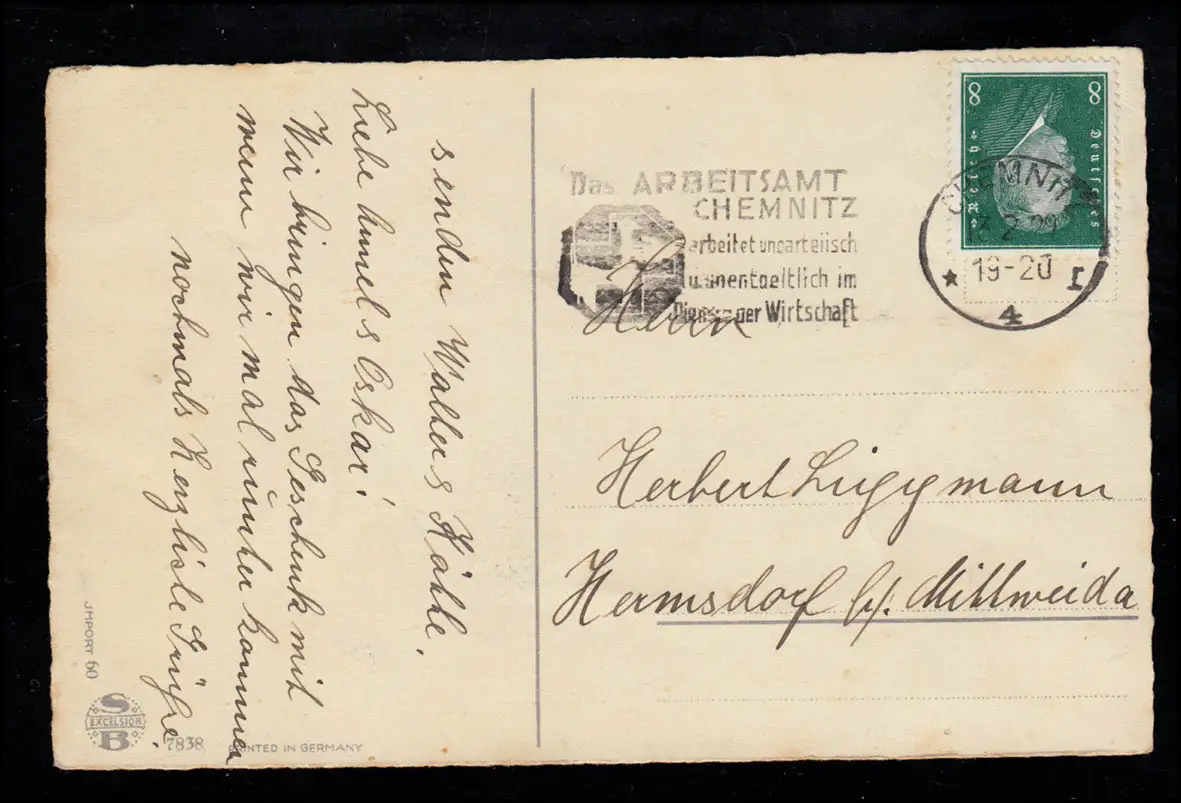 senden Walter & Käthe.
Liebe & Oskar!
Wir bringen das Geschenk mit
wenn wir mal runter kommen
nochmals Herzliche Grüße.
JMPORT 60
S EXCELSIOR B
7838
PRINTED IN GERMANY
Das ARBEITSAMT
CHEMNITZ
arbeitet unparteiisch
u. unentgeltlich im
Dienste der Wirtschaft
8 8
Deutsches
Reich
CHEMNITZ
2 29
19-20
* 4 r
Herrn
Herbert
Hermsdorf b/. Mittweida